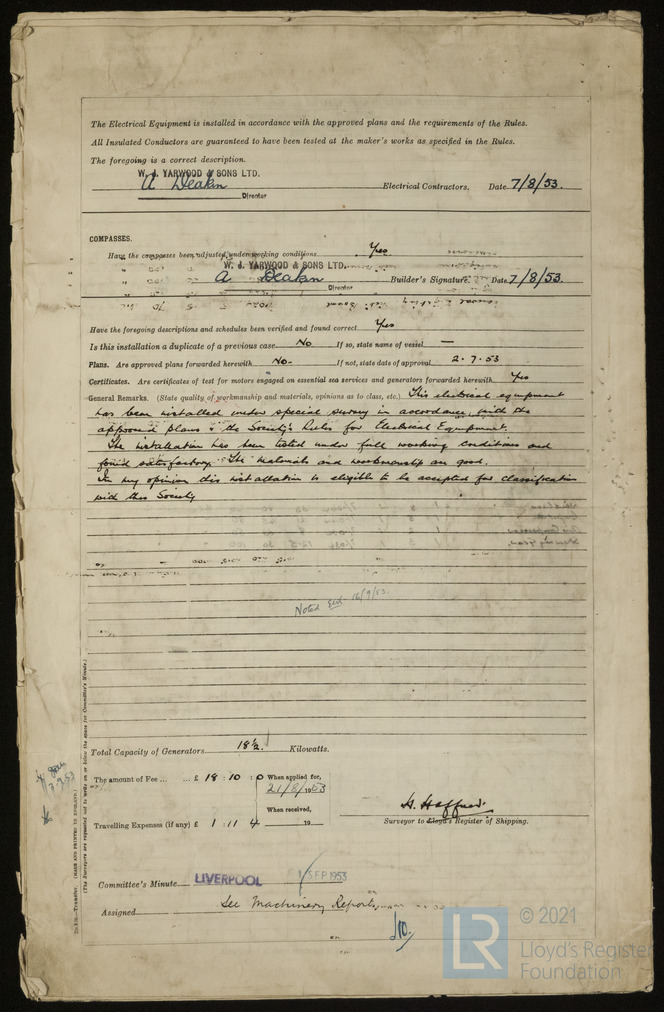 The Electrical Equipment is installed in accordance with the approved plans and the requirements of the Rules.
All Insulated Conductors are guaranteed to have been tested at the maker's works as specified in the Rules.
The foregoing is a correct description.
W. J. YARWOOD & SONS LTD.
A Deakin Electrical Contractors. Date 7/8/53.
Director
COMPASSES.
Have the compasses been adjusted under working conditions Yes
W. J. YARWOOD & SONS LTD.
A Deakin Builder's Signature. Date 7/8/53.
Director
Have the foregoing descriptions and schedules been verified and found correct Yes
Is this installation a duplicate of a previous case No If so, state name of vessel —
Plans. Are approved plans forwarded herewith No. If not, state date of approval 2.7.53
Certificates. Are certificates of test for motors engaged on essential sea services and generators forwarded herewith Yes
General Remarks. (State quality of workmanship and materials, opinions as to class, etc.) This electrical equipment
has been installed under special survey in accordance with the
approved plans & the Society's Rules for Electrical Equipment.
The installation has been tested under full working conditions and
found satisfactory. The materials and workmanship are good.
In my opinion this installation is eligible to be accepted for classification
with this Society
Noted 16/9/53.
Total Capacity of Generators 18½ Kilowatts.
The amount of Fee ... ... £ 18 : 10 : 0 When applied for,
21/8/1953
When received,
Travelling Expenses (if any) £ 1 : 11 : 4 19
Surveyor to Lloyd's Register of Shipping.
Committee's Minute LIVERPOOL 1 SEP 1953
Assigned See Machinery Report
(MADE AND PRINTED IN ENGLAND.)
(The Surveyors are requested not to write on or below the space for Committee's Minute.)
LR
© 2021
Lloyd's Register
Foundation